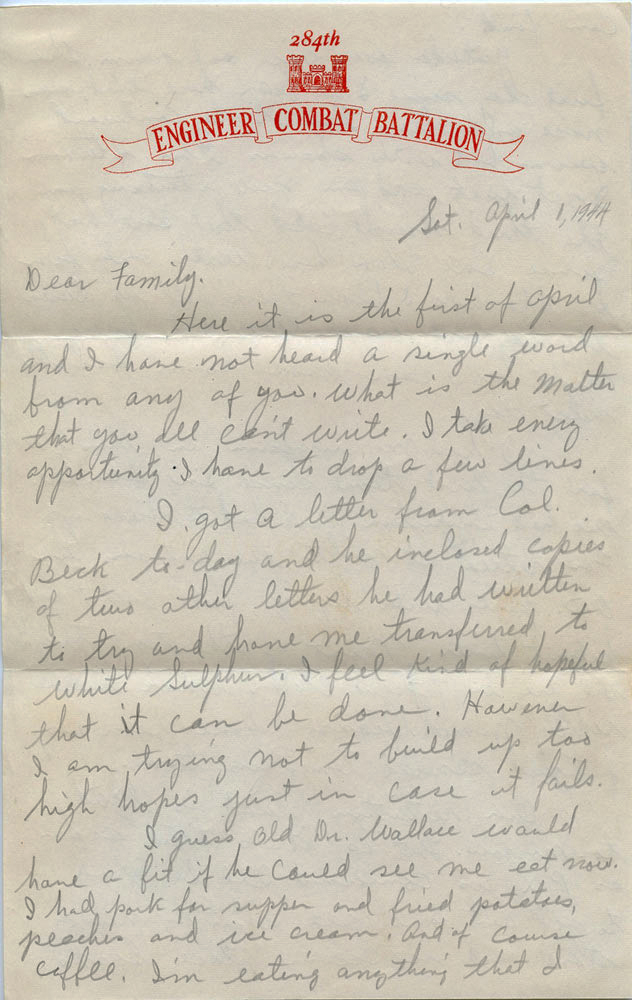 284th
ENGINEER COMBAT BATTALION
Sat. April 1, 1944
Dear Family.
Here it is the first of april
and I have not heard a single word
from any of you. What is the Matter
that you all can't write. I take every
opportunity I have to drop a few lines.
I got a letter from Col.
Beck to-day and he inclosed copies
of two other letters he had written
to try and have me transferred to
White Sulphur. I feel kind of hopeful
that it can be done. However
I am trying not to build up too
high hopes just in case it fails.
I guess Old Dr. Wallace would
have a fit if he could see me eat now.
I had pork for supper and fried potatoes,
peaches and ice cream. And of course
coffee. I'm eating anything that I